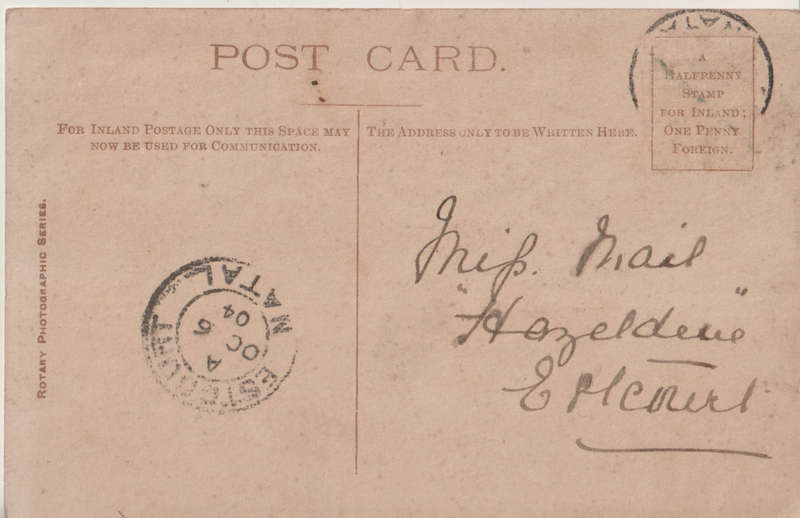 POST CARD.
FOR INLAND POSTAGE ONLY THIS SPACE MAY
NOW BE USED FOR COMMUNICATION.
THE ADDRESS ONLY TO BE WRITTEN HERE.
A
HALFPENNY
STAMP
FOR INLAND;
ONE PENNY
FOREIGN.
NATA
ROTARY PHOTOGRAPHIC SERIES.
ESTCOURT
NATAL
A
OC 6
04
Miss. Mail
"Hazeldene"
Estcourt